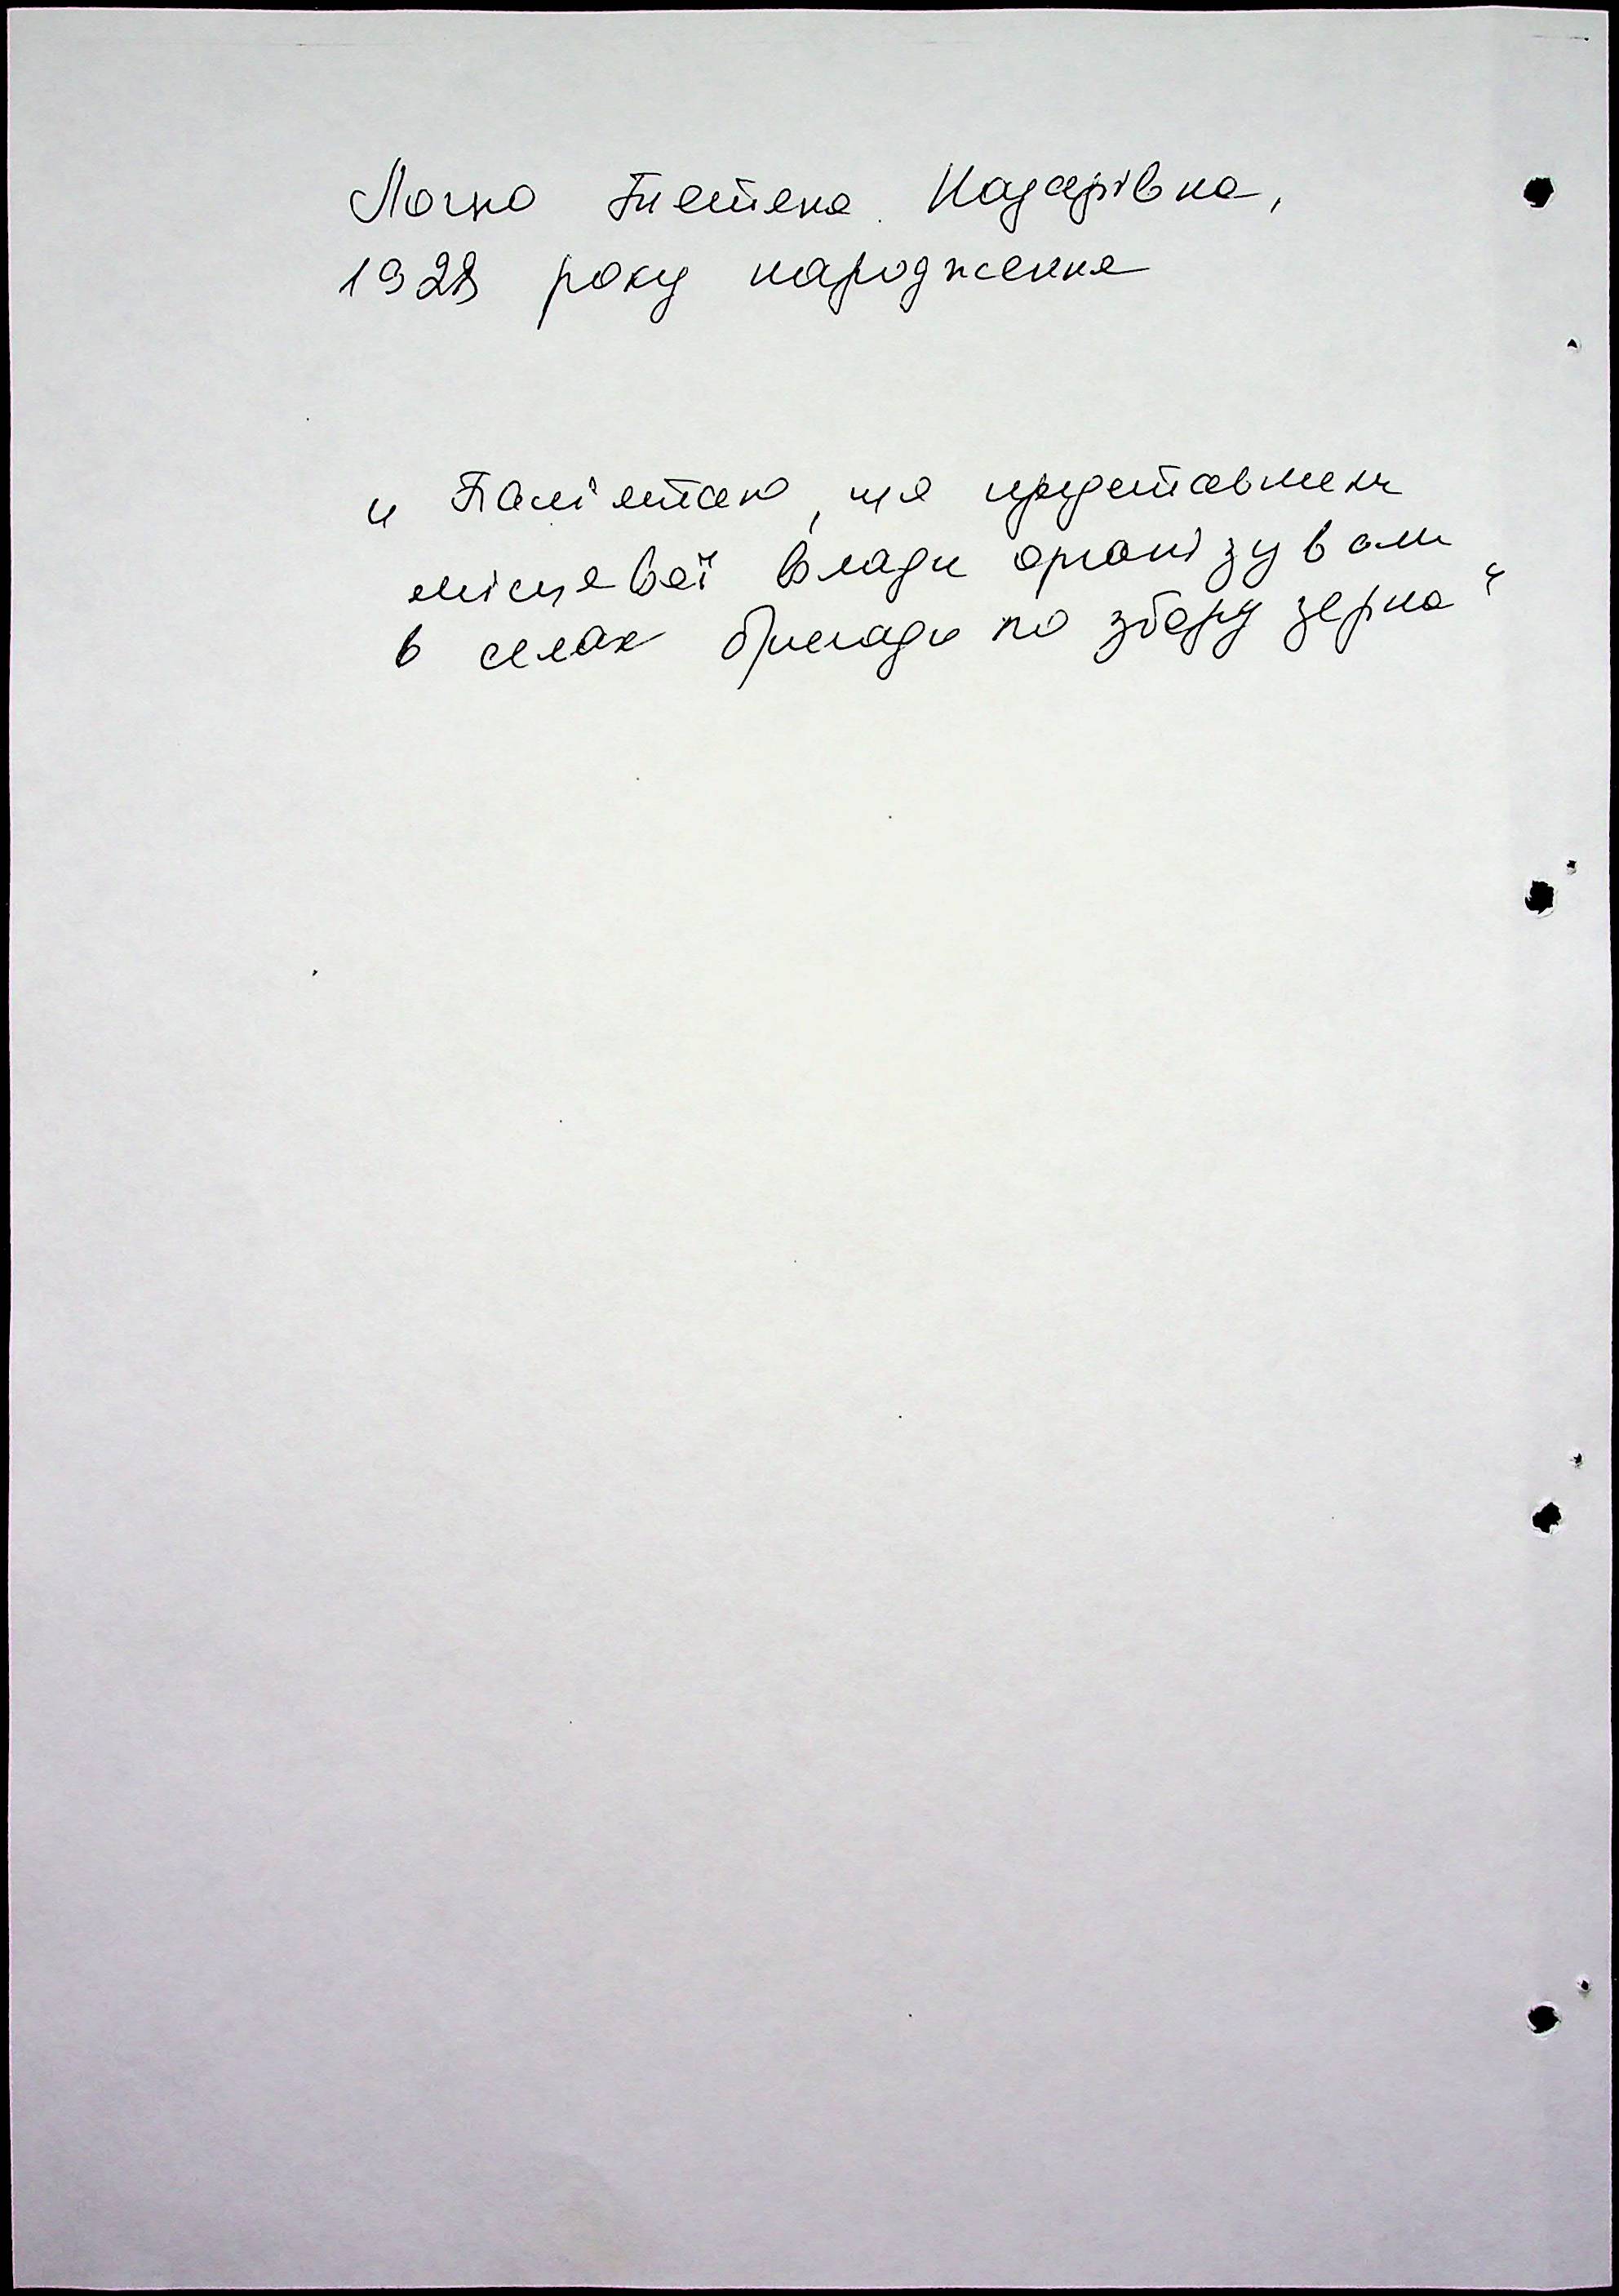 Тетяна Назарівна,
1928 року народження
„ Пам'ятаю, що представники
місцевої влади організували
в селах бригади по збору зерна "